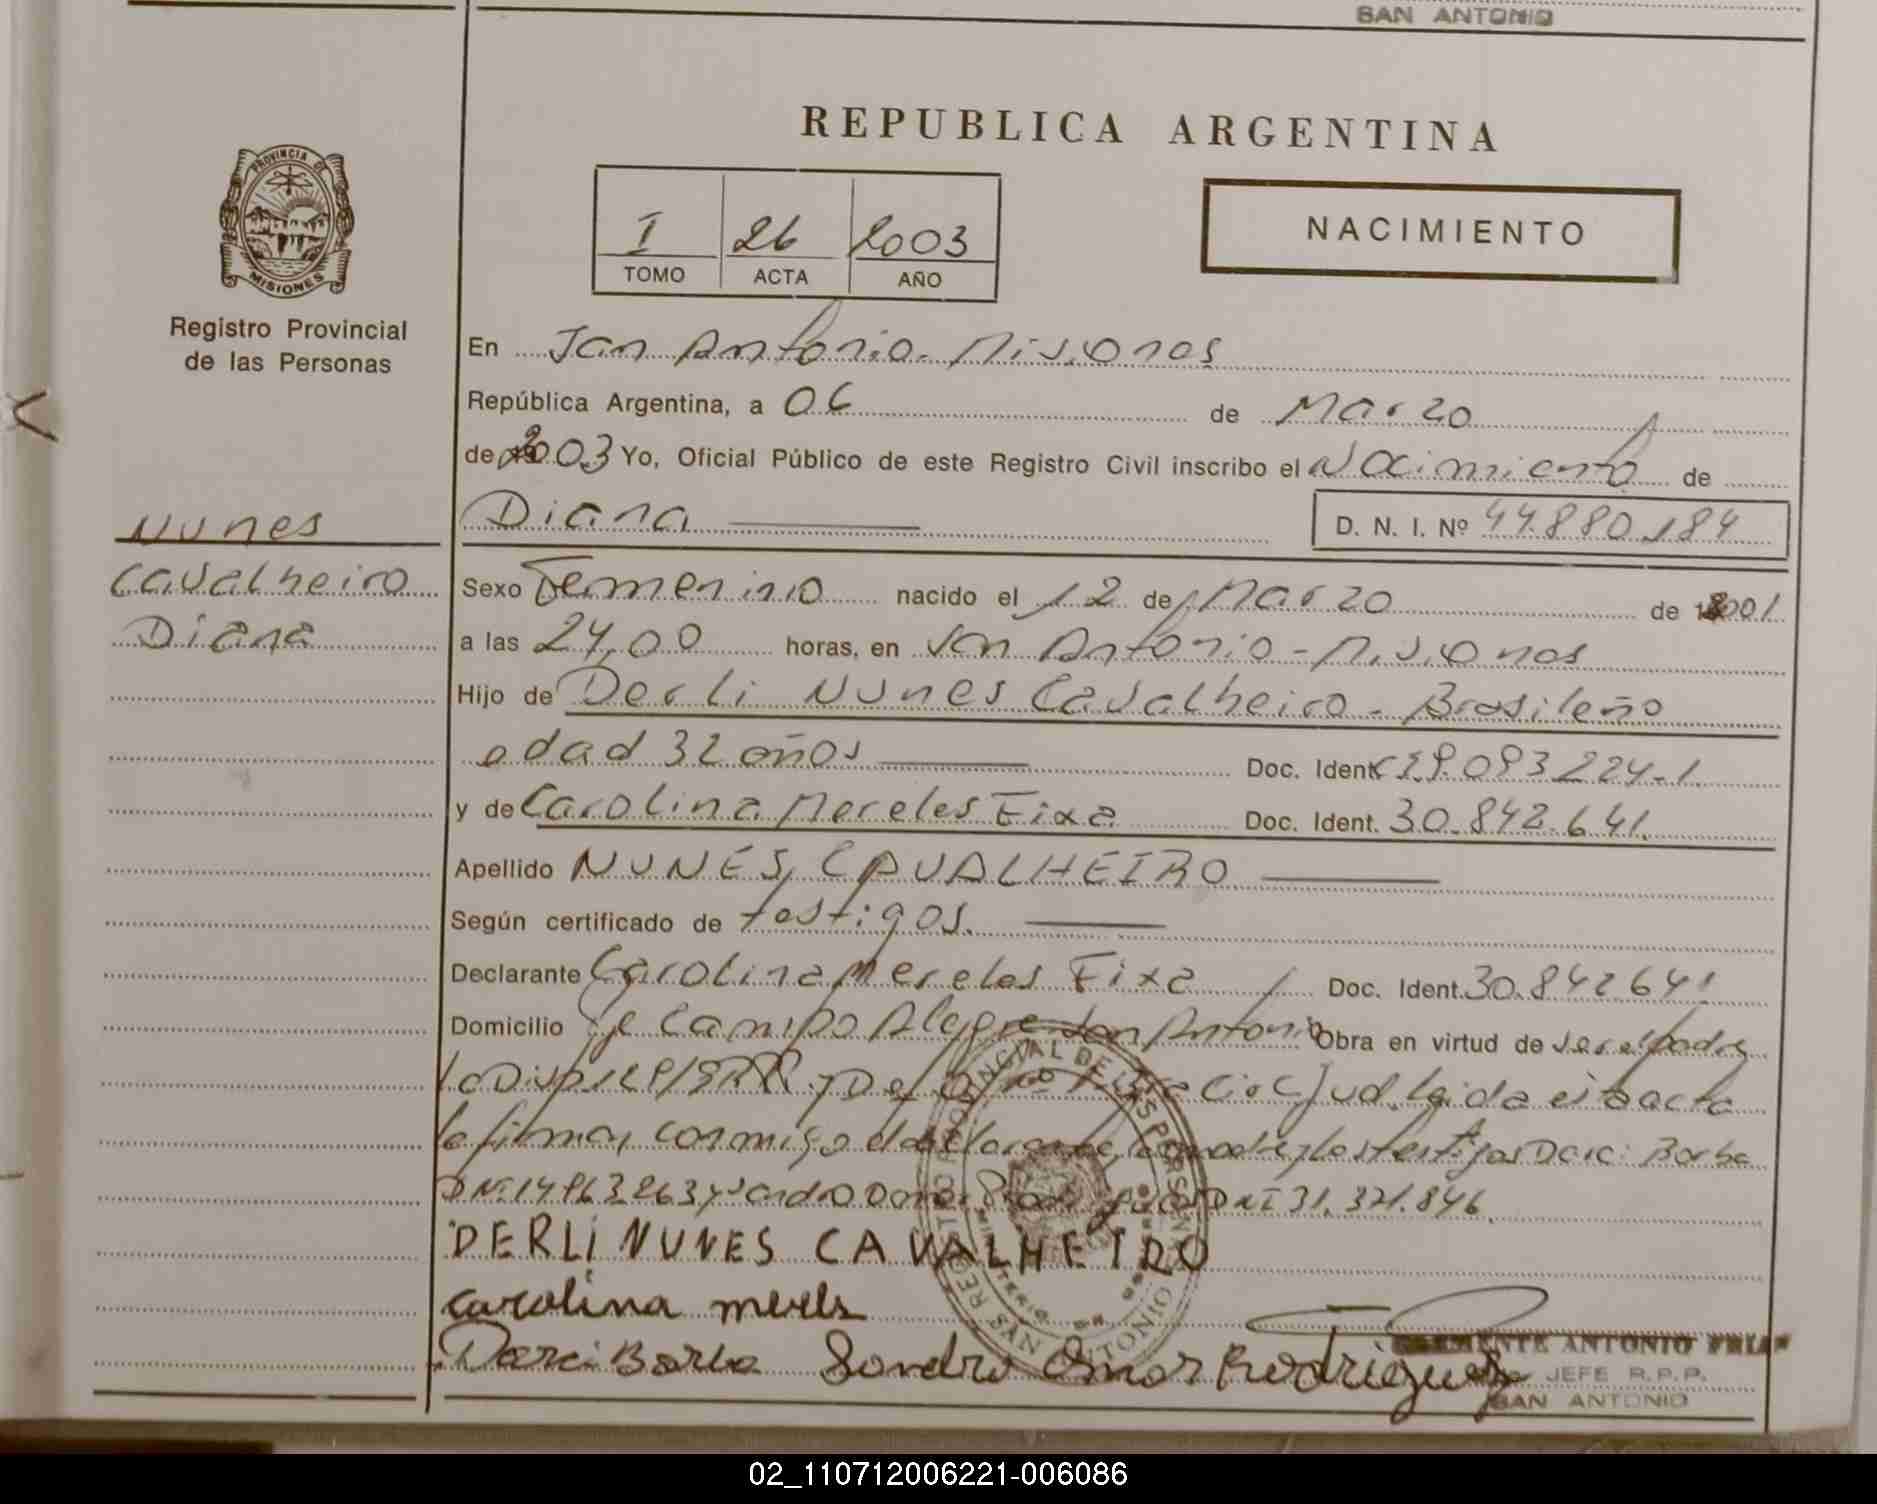 SAN ANTONIO
REPUBLICA ARGENTINA
PROVINCIA DE
MISIONES
Registro Provincial
de las Personas
I 26 2003
TOMO ACTA AÑO
NACIMIENTO
En San Antonio - Misiones
República Argentina, a 06 de Marzo
de 2003 Yo, Oficial Público de este Registro Civil inscribo el Nacimiento de
Nunes
Cavalheiro
Diana
Diana D. N. I. Nº 44.880.184
Sexo Femenino nacido el 12 de Marzo de 2001
a las 24,00 horas, en San Antonio - Misiones
Hijo de Derli Nunes Cavalheiro - Brasileño
edad 32 años Doc. Ident. 9.093.224-1
y de Carolina Mereles Fixa Doc. Ident. 30.842.641
Apellido NUNES, CAVALHEIRO
Según certificado de testigos.
Declarante Carolina Mereles Fixa Doc. Ident. 30.842641
Domicilio Campo Alegre San Antonio Obra en virtud de ser el padre
Jud. Leida esta acta
la firman conmigo declarante, padre y los testigos Darci Borba
DNI 14963263 y Sandro Omar Rodriguez DNI 31.321.846
DERLI NUNES CAVALHEIRO
carolina mereles
Darci Borba Sandro Omar Rodriguez
ANTONIO
JEFE R.P.P.
SAN ANTONIO
REGISTRO PROVINCIAL DE LAS PERSONAS
SAN ANTONIO
02_110712006221-006086